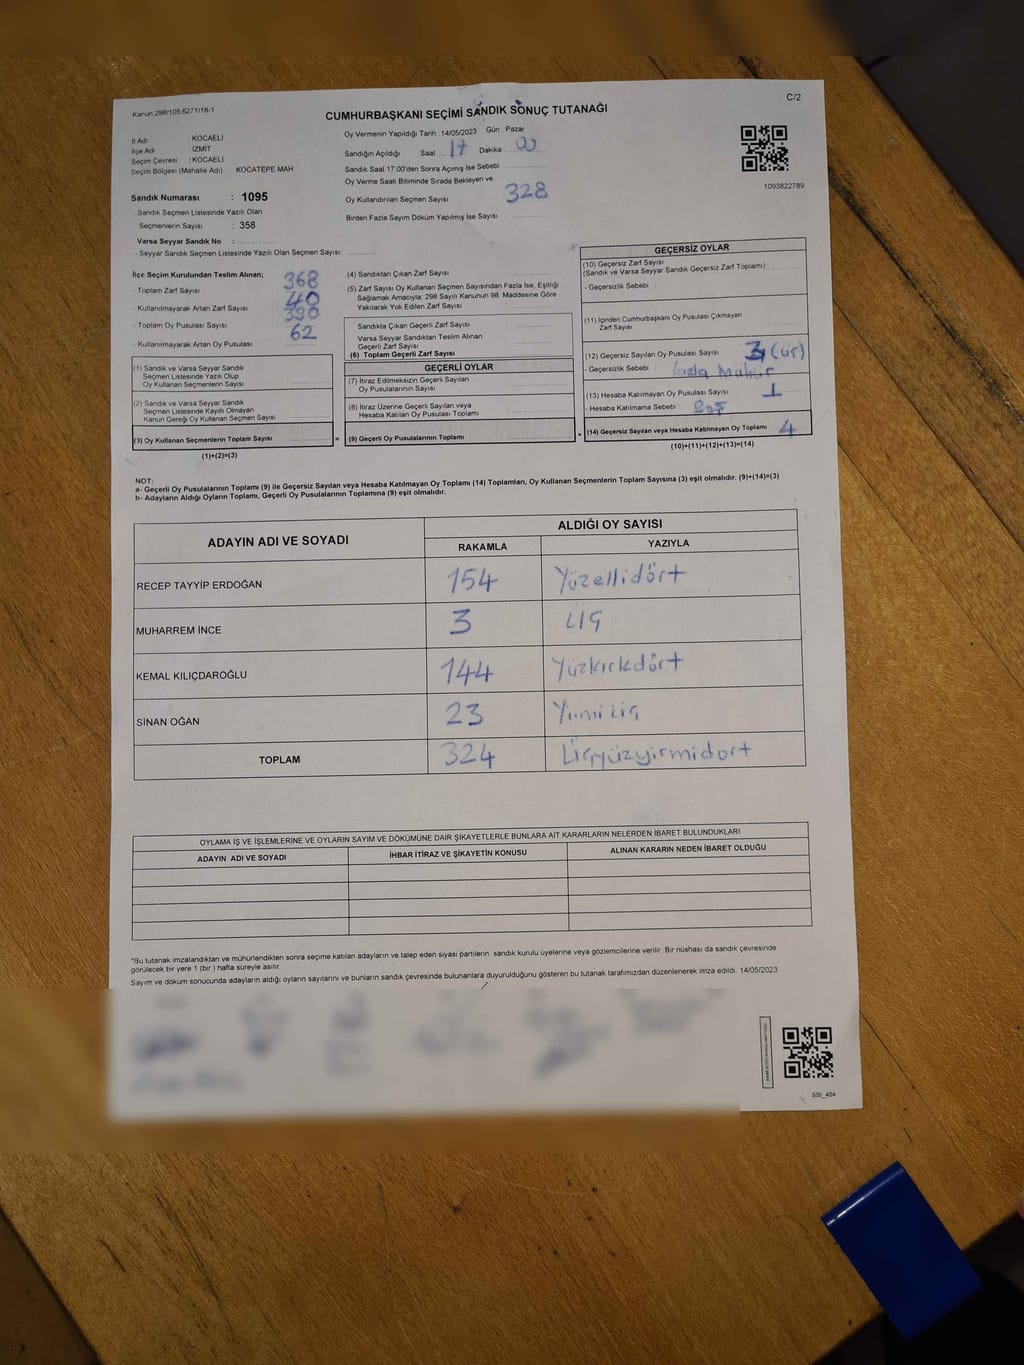 Kanun 298/105.6271/18-1
C/2
CUMHURBAŞKANI SEÇİMİ SANDIK SONUÇ TUTANAĞI
İl Adı : KOCAELİ
İlçe Adı : İZMİT
Seçim Çevresi : KOCAELİ
Seçim Bölgesi (Mahalle Adı) KOCATEPE MAH
Sandık Numarası : 1095
Sandık Seçmen Listesinde Yazılı Olan
Seçmenlerin Sayısı : 358
Varsa Seyyar Sandık No :
- Seyyar Sandık Seçmen Listesinde Yazılı Olan Seçmen Sayısı:
Oy Vermenin Yapıldığı Tarih : 14/05/2023 Gün : Pazar
Sandığın Açıldığı Saat 17 Dakika : 00
Sandık Saat 17.00'den Sonra Açımış İse Sebebi
Oy Verme Saati Bitiminde Sırada Bekleyen ve
Oy Kullandırılan Seçmen Sayısı 328
Birden Fazla Sayım Döküm Yapılmış İse Sayısı
1093822789
İlçe Seçim Kurulundan Teslim Alınan;
- Toplam Zarf Sayısı 368
- Kullanılmayarak Artan Zarf Sayısı 40
- Toplam Oy Pusulası Sayısı 390
- Kullanılmayarak Artan Oy Pusulası 62
(1) Sandık ve Varsa Seyyar Sandık
Seçmen Listesinde Yazılı Olup
Oy Kullanan Seçmenlerin Sayısı
(2) Sandık ve Varsa Seyyar Sandık
Seçmen Listesinde Kayıtlı Olmayan
Kanun Gereği Oy Kullanan Seçmen Sayısı
(3) Oy Kullanan Seçmenlerin Toplam Sayısı
(1)+(2)=(3)
(4) Sandıktan Çıkan Zarf Sayısı
(5) Zarf Sayısı Oy Kullanan Seçmen Sayısından Fazla İse, Eşitliği
Sağlamak Amacıyla; 298 Sayılı Kanunun 98. Maddesine Göre
Yakılarak Yok Edilen Zarf Sayısı
Sandıkta Çıkan Geçerli Zarf Sayısı
Varsa Seyyar Sandıktan Teslim Alınan
Geçerli Zarf Sayısı
(6) Toplam Geçerli Zarf Sayısı
GEÇERLİ OYLAR
(7) İtiraz Edilmeksizin Geçerli Sayılan
Oy Pusulalarının Sayısı
(8) İtiraz Üzerine Geçerli Sayılan veya
Hesaba Katılan Oy Pusulası Toplamı
= (9) Geçerli Oy Pusulalarının Toplamı
GEÇERSİZ OYLAR
(10) Geçersiz Zarf Sayısı
(Sandık ve Varsa Seyyar Sandık Geçersiz Zarf Toplamı)
- Geçersizlik Sebebi
(11) İçinden Cumhurbaşkanı Oy Pusulası Çıkmayan
Zarf Sayısı
(12) Geçersiz Sayılan Oy Pusulası Sayısı 3 (üç)
- Geçersizlik Sebebi fazla Mühür
(13) Hesaba Katılmayan Oy Pusulası Sayısı 1
- Hesaba Katılmama Sebebi : Boş
+ (14) Geçersiz Sayılan veya Hesaba Katılmayan Oy Toplamı 4
(10)+(11)+(12)+(13)=(14)
NOT:
a- Geçerli Oy Pusulalarının Toplamı (9) ile Geçersiz Sayılan veya Hesaba Katılmayan Oy Toplamı (14) Toplamları, Oy Kullanan Seçmenlerin Toplam Sayısına (3) eşit olmalıdır. (9)+(14)=(3)
b- Adayların Aldığı Oyların Toplamı, Geçerli Oy Pusulalarının Toplamına (9) eşit olmalıdır.
ADAYIN ADI VE SOYADI
ALDIĞI OY SAYISI
RAKAMLA YAZIYLA
RECEP TAYYİP ERDOĞAN 154 Yüzellidört
MUHARREM İNCE 3 Üç
KEMAL KILIÇDAROĞLU 144 Yüzkırkdört
SİNAN OĞAN 23
TOPLAM 324 Üçyüzyirmidört
OYLAMA İŞ VE İŞLEMLERİNE VE OYLARIN SAYIM VE DÖKÜMÜNE DAİR ŞİKAYETLERLE BUNLARA AİT KARARLARIN NELERDEN İBARET BULUNDUKLARI
ADAYIN ADI VE SOYADI İHBAR İTİRAZ VE ŞİKAYETİN KONUSU ALINAN KARARIN NEDEN İBARET OLDUĞU
*Bu tutanak imzalandıktan ve mühürlendikten sonra seçime katılan adayların ve talep eden siyasi partilerin sandık kurulu üyelerine veya gözlemcilerine verilir. Bir nüshası da sandık çevresinde
görülecek bir yere 1 (bir ) hafta süreyle asılır.
Sayım ve döküm sonucunda adayların aldığı oyların sayılarını ve bunların sandık çevresinde bulunanlara duyurulduğunu gösteren bu tutanak tarafımızdan düzenlenerek imza edildi. 14/05/2023
SSI_404